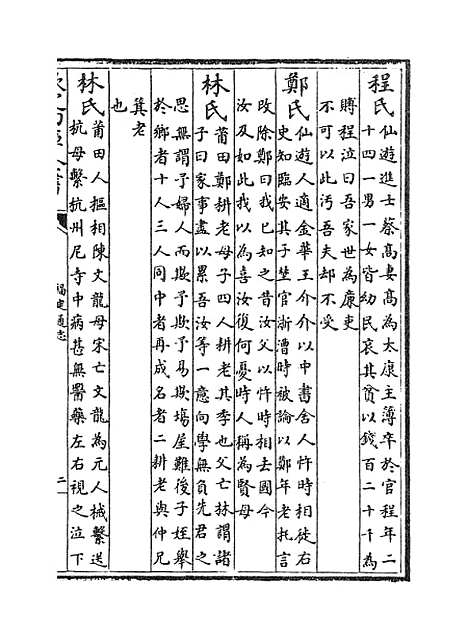 程氏仙遊進士蔡髙妻髙為太康主簿卒於官程年二
十四一男一女皆幼民哀其貧以錢百二十千為
賻程泣曰吾家世為廉吏
不可以此污吾夫却不受
鄭氏仙遊人適金華王介介以中書舍人忤時相徒右
史知臨安其子埜官浙漕時被論以鄭年老托言
改除鄭曰我已知之昔汝父以忤時相去國今
汝及如此我以為喜汝復何憂時人稱為賢母
林氏莆田鄭耕老母子四人耕老其季也父亡林謂諸
子曰家事盡以累吾汝等一意向學無負先君之
思無謂予婦人而欺予欺予易欺塲屋難後子姪舉
於鄉者十人三人同中者再成名者二耕老與仲兄
㠱老
也
林氏莆田人樞相陳文龍母宋亡文龍為元人械繫送
杭母繫杭州尼寺中病甚無醫藥左右視之泣下
福建通志
二